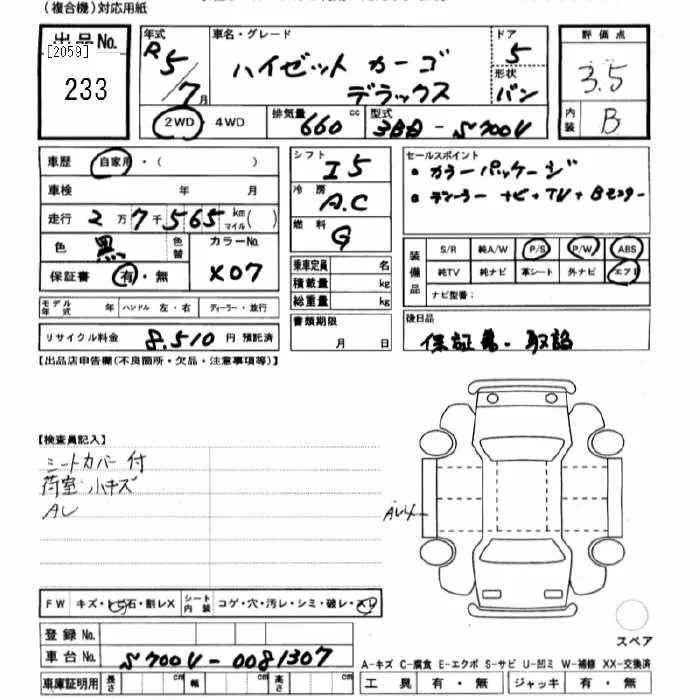 (複合機)対応用紙
出品No.
[2059]
233
年式
R5/7月
車名・グレード
ハイゼット カーゴ
デラックス
ドア
5
形状
バン
評価点
3.5
内装
B
2WD 4WD
排気量
660 cc
型式
3BD-S700V
車歴 自家用・( )
車検 年 月
走行 2万7千565 km マイル( )
色 黒 色替
カラーNo.
X07
保証書 有・無
シフト
I5
冷房
A.C
燃料
G
セールスポイント
・カラーパッケージ
・ ナビ+TV+Bモニター
装備品
S/R 純A/W P/S P/W ABS
純TV 純ナビ 革シート 外ナビ エアB
ナビ型番:
乗車定員 名
積載量 kg
総重量 kg
書類期限
月 日
モデル年式 年 ハンドル 左・右 ディーラー・並行
リサイクル料金 8.510 円 預託済
後日品
保証書・取説
【出品店申告欄(不良箇所・欠品・注意事項等)】
【検査員記入】
シートカバー付
荷室 小キズ
AU
FW キズ・トビ石・割レX シート内装 コゲ・穴・汚レ・シミ・破レ・スレ
登録No.
車台No. S700V-0081307
車庫証明用 長さ cm 幅 cm 高さ cm
スペア
A-キズ C-腐食 E-エクボ S-サビ U-凹ミ W-補修 XX-交換済
工具 有・無 ジャッキ 有・無